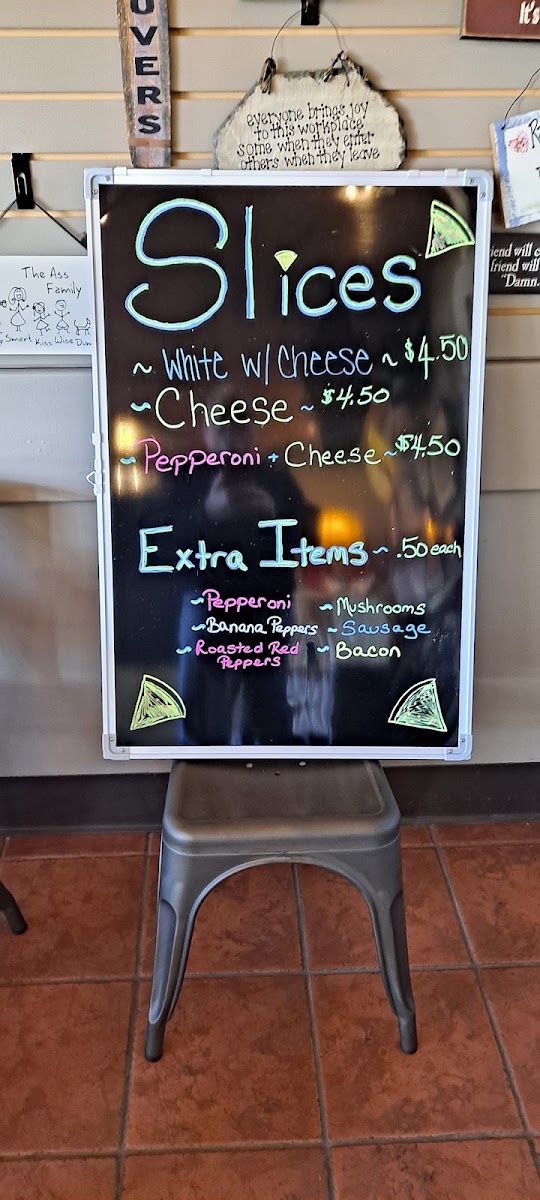 OVERS
It's
everyone brings joy
to this workplace
some when they enter
others when they leave
The Ass
Family
Smart Kiss Wise Dum
iend will c
friend will
"Damn.
Slices
~ White w/ Cheese ~ $4.50
~ Cheese ~ $4.50
~ Pepperoni + Cheese ~ $4.50
Extra Items ~ .50 each
~ Pepperoni ~ Mushrooms
~ Banana Peppers ~ Sausage
~ Roasted Red Peppers ~ Bacon